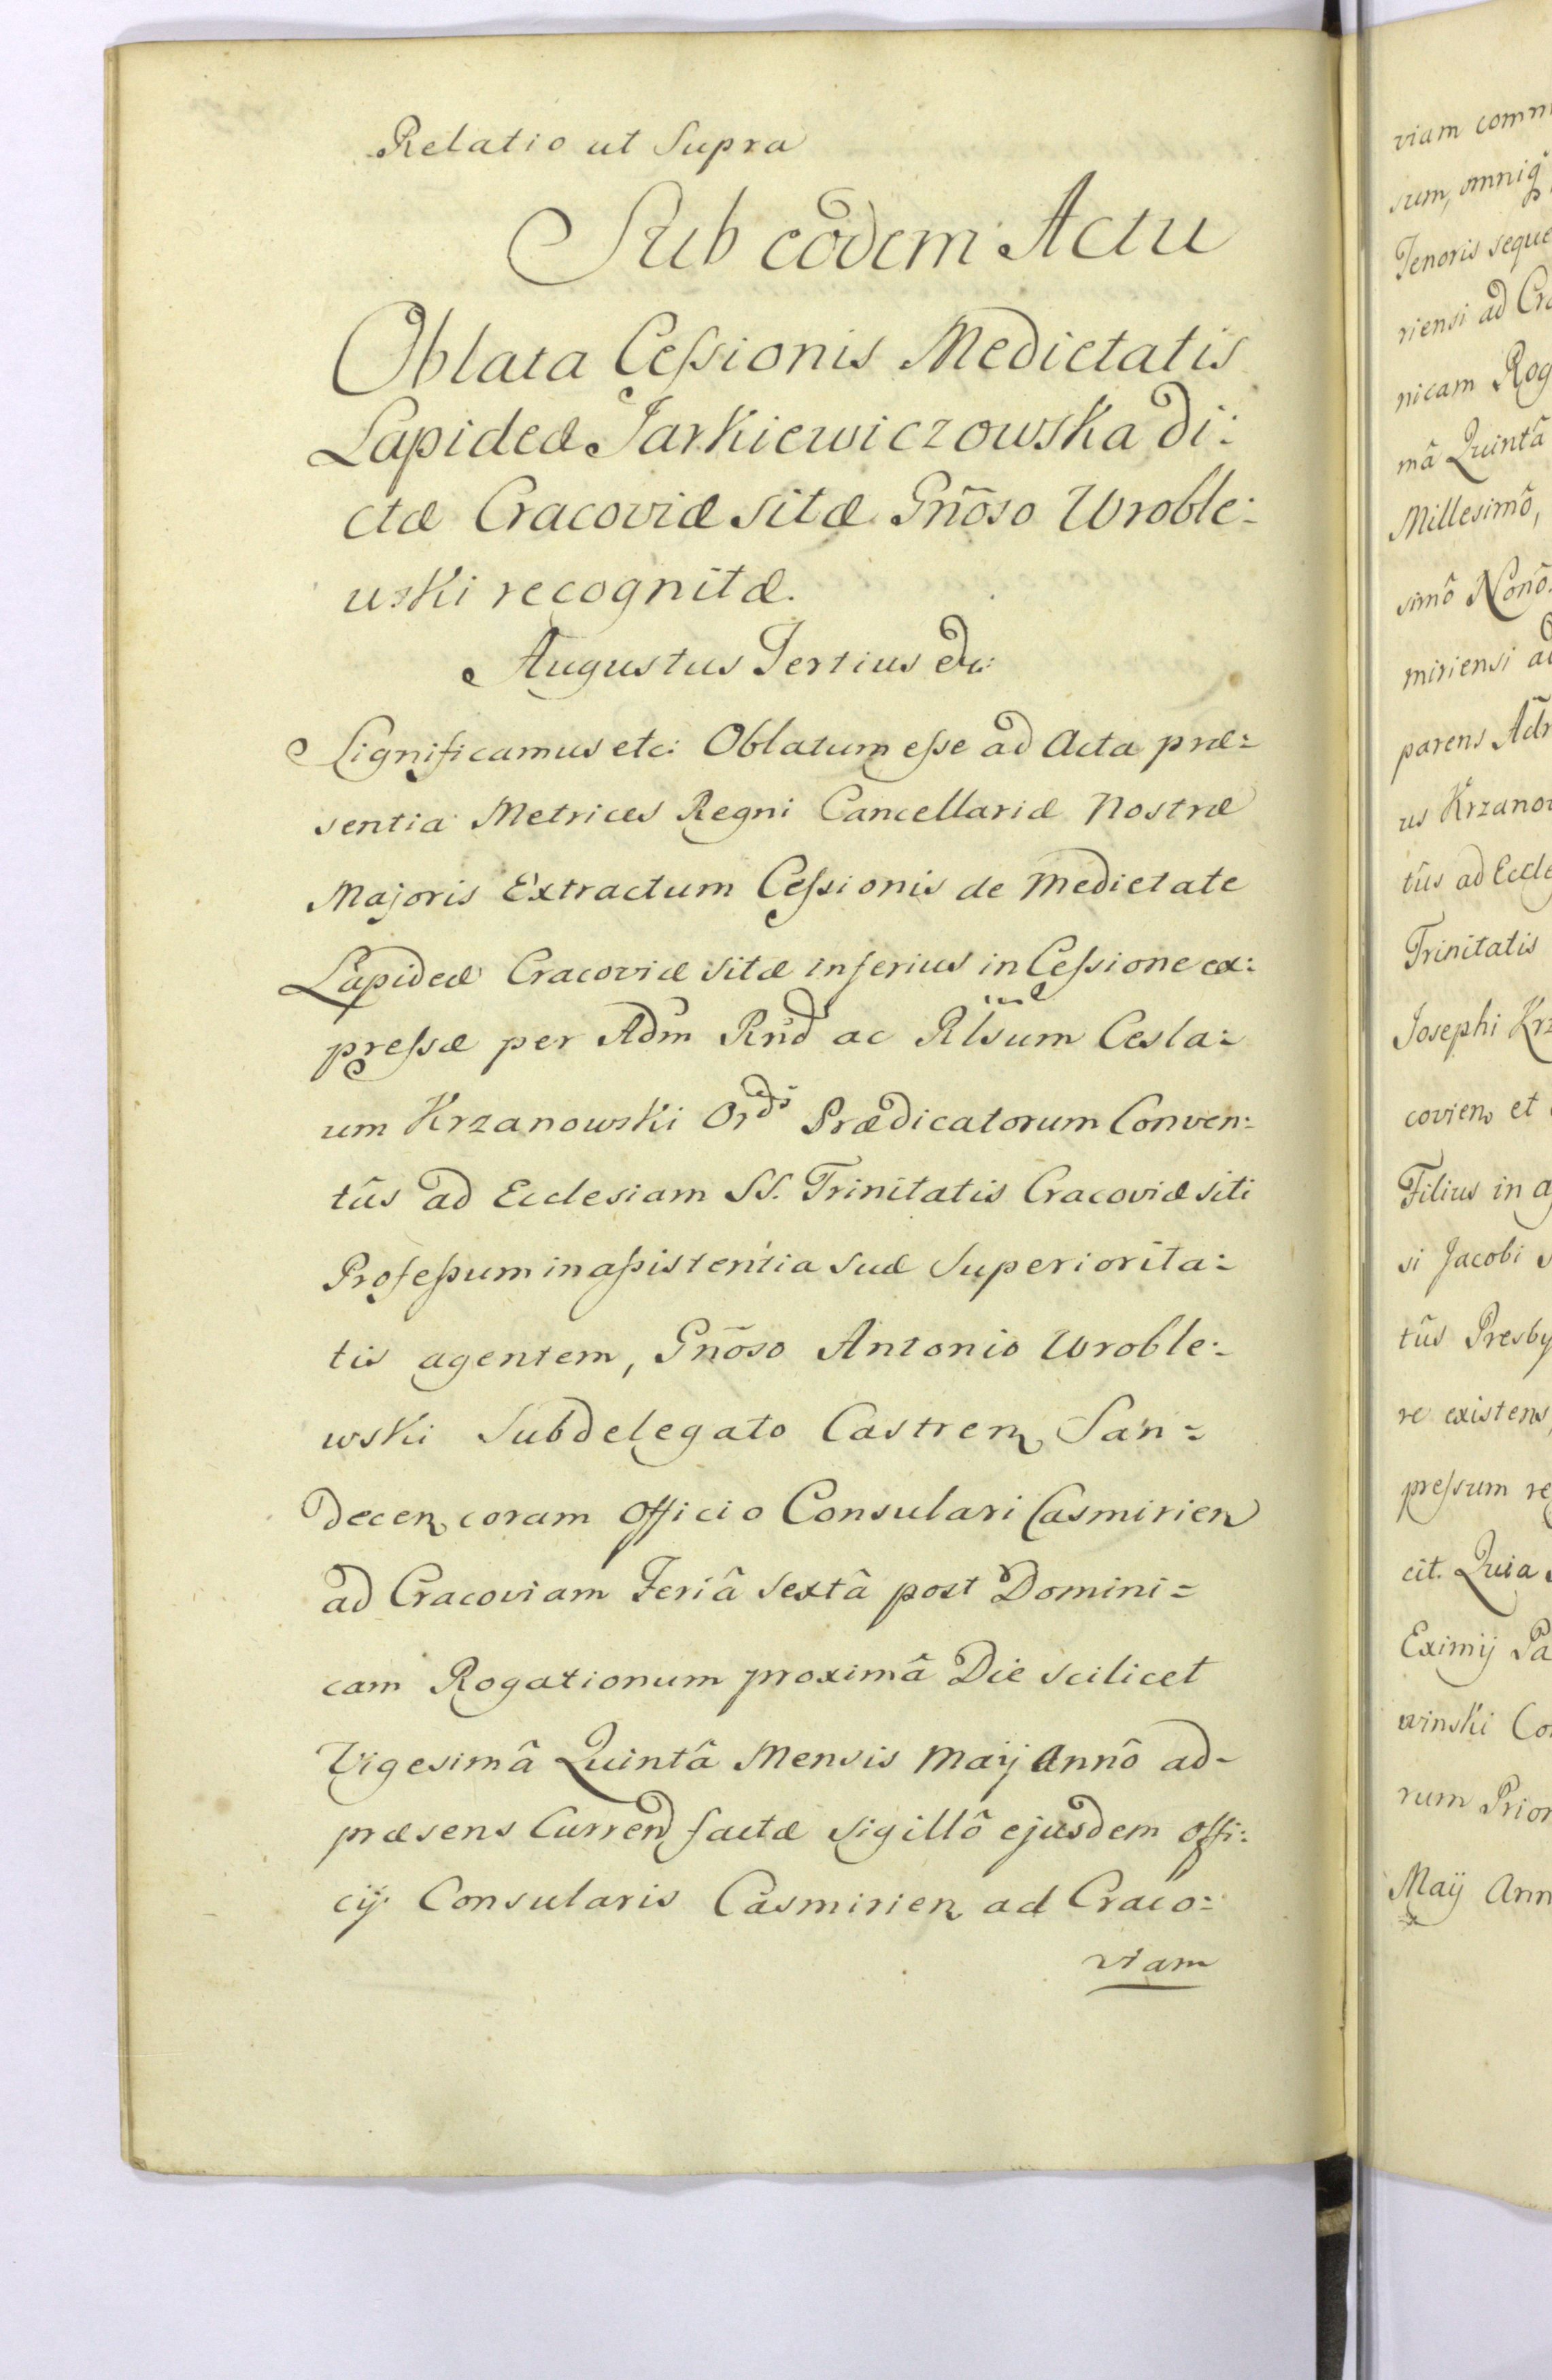 Relatio ut Supra
Sub eôdem Actu
Oblata Cessionis Medietatis
Lapideæ Jarkiewiczowska di:
ctæ Cracoviæ sitæ Gnõso Wroble:
wski recognitæ.
Augustus Tertius etc:
Significamus etc: Oblatum esse ad Acta præ:
sentia Metrices Regni Cancellariæ Nostræ
Majoris Extractum Cessionis de Medietate
Lapideæ Cracoviæ sitæ inferius in Cessione ex:
pressæ per Adm Rnd ac Rlsum Cesla:
um Krzanowski Ordis Prædicatorum Conven:
tûs ad Ecclesiam SS. Trinitatis Cracoviæ siti
Professum in assistentia suæ Superiorita:
tis agentem, Gnõso Antonio Wroble:
wski Subdelegato Castren San:
decen coram Officio Consulari Casmirien
ad Cracoviam Feriâ Sextâ post Domini:
cam Rogationum proximâ Die scilicet
Vigesimâ Quintâ Mensis Maij Annô ad-
præsens Curren factæ sigillô ejusdem Offi:
cij Consularis Casmirien ad Craco:
viam
viam
sum, omniq
Tenoris
riensi ad
nicam
mâ Quintâ
Millesimô,
simô Nonô.
miriensi
parens
us
tûs ad
Trinitatis
Josephi
covien et
Filius in
si Jacobi
tûs
re existens,
pressum
cit. Quia
Eximij
winski
rum
Maij